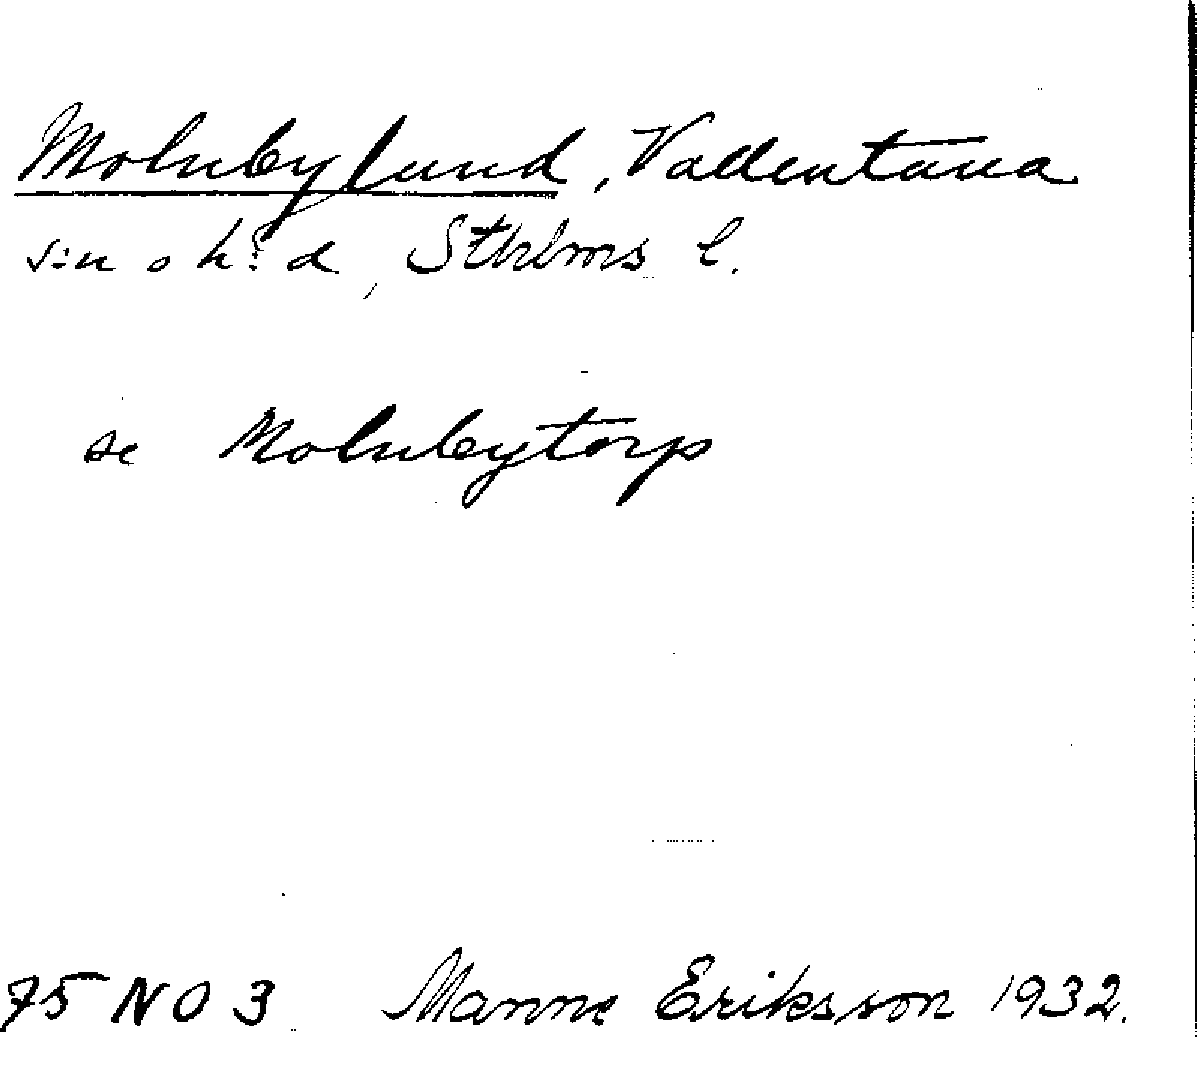 Molnbylund, Vallentuna
s:n o h:d, Sthlms l.
se Molnbytorp
75 NO 3 Manne Eriksson 1932.